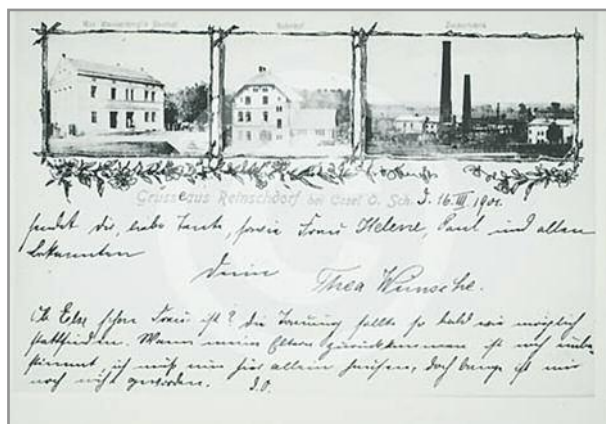 Bahnhof
Zuckerfabrik
Grüsse aus Reinschdorf bei Cosel O. Sch. d. 16. III. 1901.
sendet dir, liebe Tante, sowie Frau Helene, Paul und allen
Bekannten
deine Thea Wunsche.
Ob Else schon Frau ist? die Trauung sollte so bald wie möglich
stattfinden. Wann meine Eltern zurückkommen ist noch unbe-
stimmt, ich muß nun hier allein hausen, doch bange ist mir
noch nicht geworden. D.O.